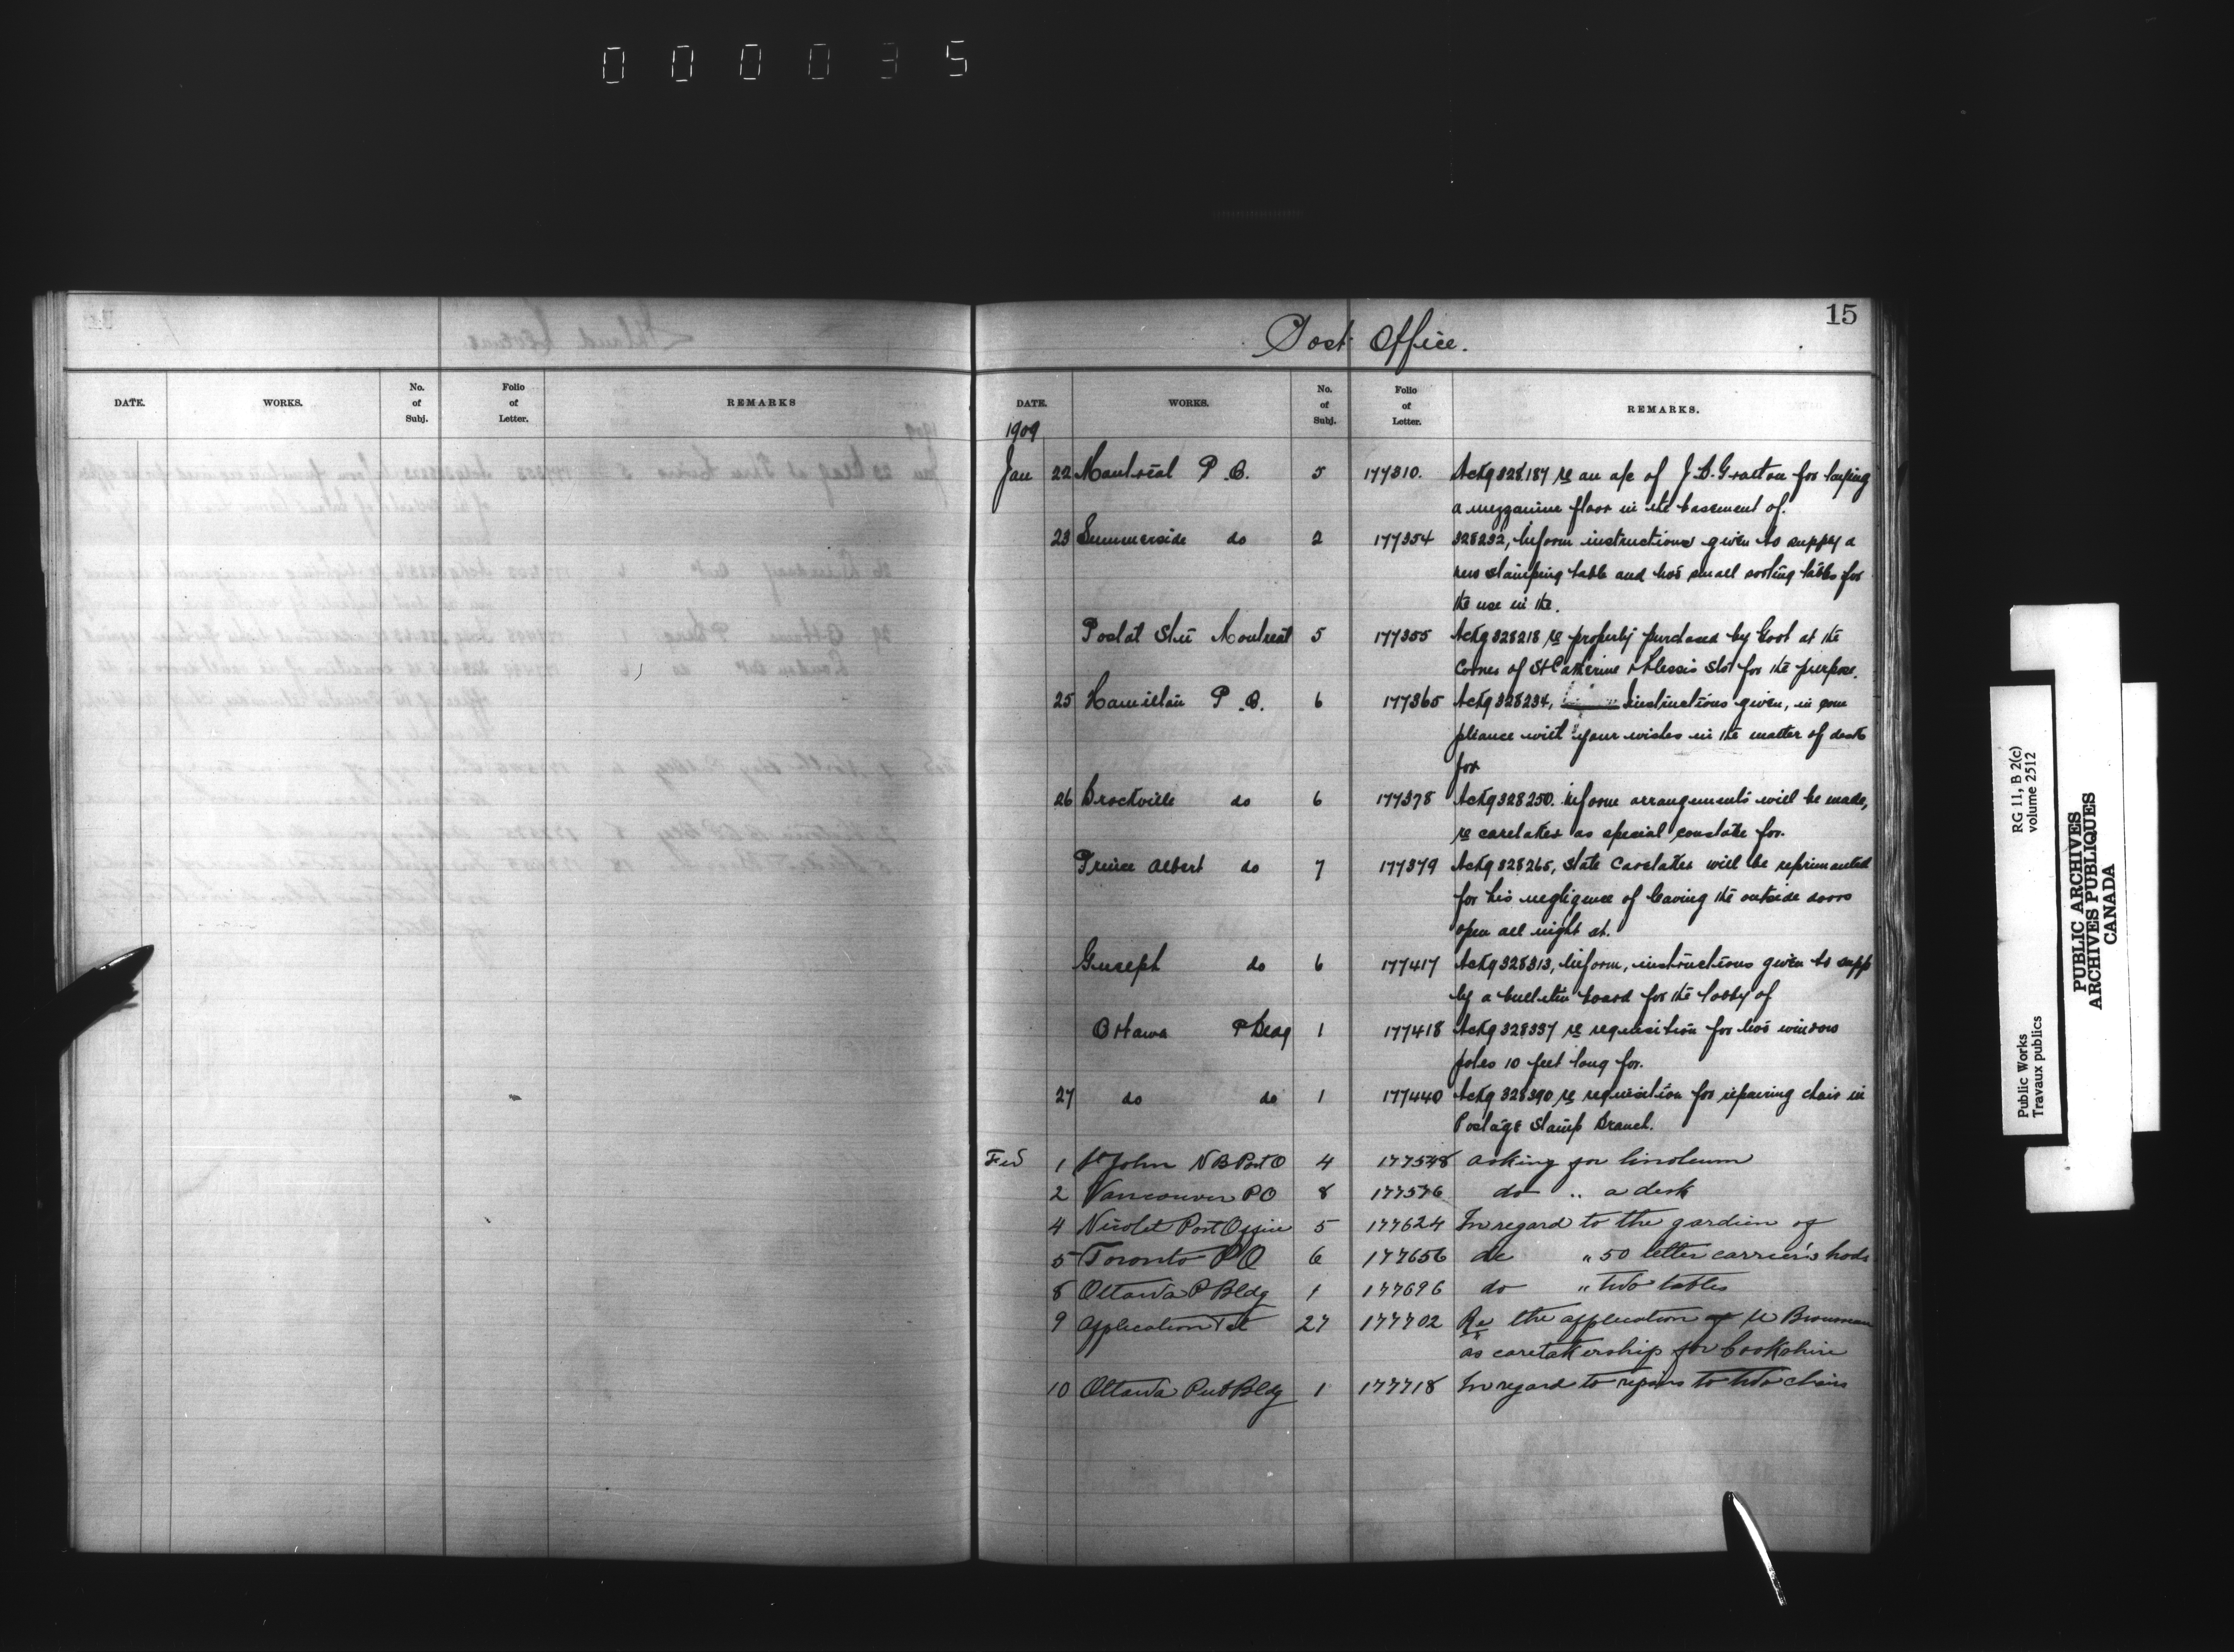 0 0 0 0 3 5
15
Post Office.
DATE. WORKS. No. of Subj. Folio of Letter. REMARKS
DATE. WORKS. No. of Subj. Folio of Letter. REMARKS.
1909
Jan 22 Montreal P.O. 5 177310. Ackg 328187 re an a/c of J.B. Gratton for laying
a mezzanine floor in the basement of.
23 Summerside do 2 177354 328232, Inform instructions given to supply a
new stamping table and two small sorting tables for
the use in the.
Postal Stn Montreal 5 177355 Ackg 328218 re property purchased by Govt at the
Corner of St Catherine & Plessis Sts for the purpose.
25 Hamilton P.O. 6 177365 Ackg 328234, instructions given, in com
pliance with your wishes in the matter of desk
for
26 Brockville do 6 177378 Ackg 328250. Inform arrangements will be made,
re caretaker as special constable for.
Prince Albert do 7 177379 Ackg 328265, State Caretaker will be reprimanded
for his negligence of leaving the outside doors
open all night at.
Guelph do 6 177417 Ackg 328313, Inform, instructions given to supp
ly a bulletin board for the lobby of
Ottawa P Bldg 1 177418 Ackg 328337 re requisition for two window
poles 10 feet long for.
27 do do 1 177440 Ackg 328390 re requisition for repairing chair in
Postage Stamp Branch.
Feb 1 St John NB Post O 4 177548 asking for linoleum
2 Vancouver PO 8 177576 do " a desk
4 Nicolet Post Office 5 177624 In regard to the gardien of
5 Toronto PO 6 177656 do " 50 letter carrier's hods
8 Ottawa P Bldg 1 177696 do " two tables
9 Application 27 177702 Re the application of
as caretakership for Cookshire
10 Ottawa Pub Bldg 1 177718 In regard to repairs to two chairs
Public Works
Travaux publics
RG 11, B 2(c)
volume 2512
PUBLIC ARCHIVES
ARCHIVES PUBLIQUES
CANADA